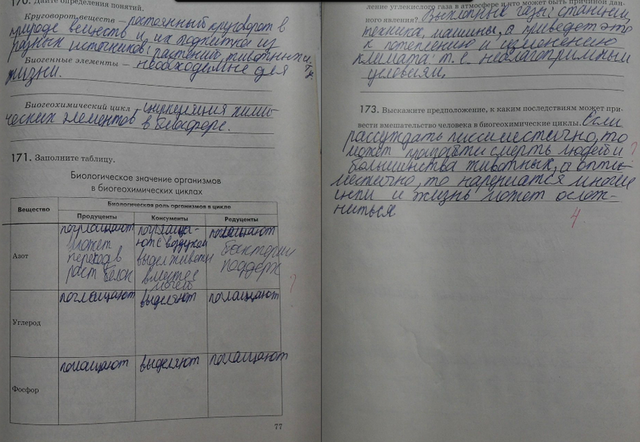 170. Дайте определения понятий.
Круговорот веществ – постоянный круговорот в
природе веществ и их подпитка из
разных источников: растений, животных и
Биогенные элементы – необходимые для
жизни.
Биогеохимический цикл – циркуляция хими-
ческих элементов в биосфере.
171. Заполните таблицу.
Биологическое значение организмов
в биогеохимических циклах
Вещество
Биологическая роль организмов в цикле
Продуценты Консументы Редуценты
Азот
поглощают
может
переход в
раст белок
поглаща-
ют с воздухом
выдел животн
вместе с
мочей
поглащают
бактерии
поддерж
Углерод
поглещают выделяют поглащают
Фосфор
поглащают выделяют поглащают
77
ление углекислого газа в атмосфере и кто может быть причиной дан-
ного явления? Выхлопные газы: станции,
техника, машины, а приведет это
к потеплению и изменению
климата. т.е. неблагоприятным
условиям.
173. Выскажите предположение, к каким последствиям может при-
вести вмешательство человека в биогеохимические циклы. Если
рассуждать пессиместично, то
может произойти смерть людей и
большинства животных, а опти-
местично, то нарушатся многие
и жизнь может ослож-
ниться
4